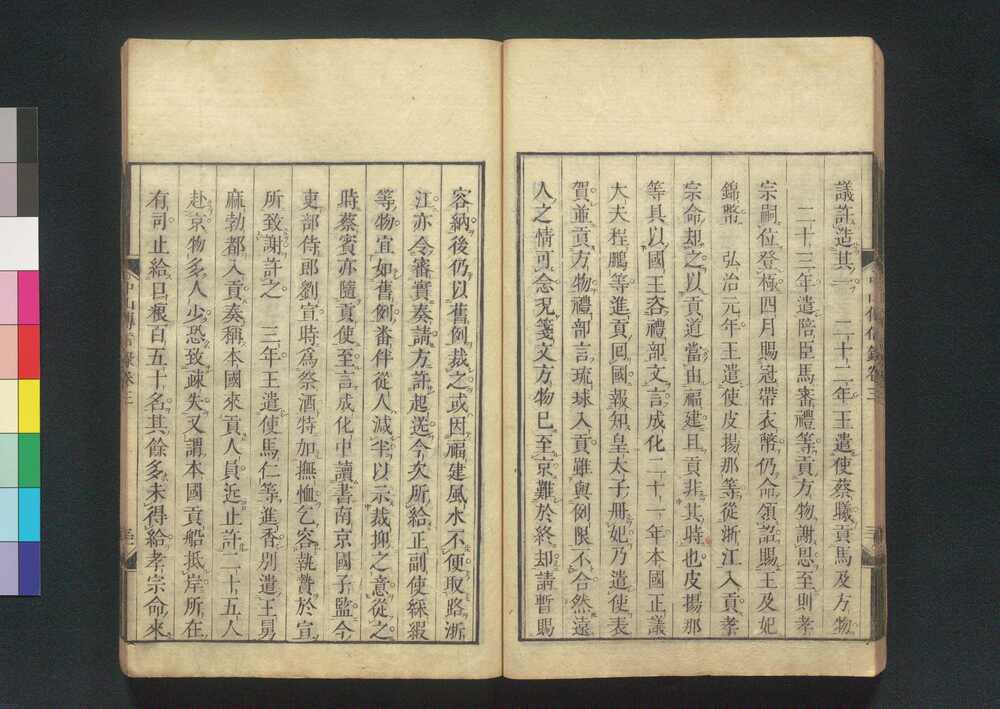 議許造其二　二十二年王遣使蔡曦貢馬及方物
二十三年遣陪臣馬審禮等貢方物謝恩至則孝
宗嗣位登極四月賜冠帶衣幣仍命領詔賜王及妃
錦幣　弘治元年王遣使皮揚那等從浙江入貢孝
宗命却之以貢道當由福建且貢非其時也皮揚那
等具以國王咨禮部文言成化二十一年本國正議
大夫程鵬等進貢回國報知皇太子冊妃乃遣使表
賀並貢方物禮部言琉球入貢雖與例限不合然遠
人之情可念況箋文方物已至京難於終却請暫賜
容納後仍以舊例裁之或因福建風水不便取路浙
江亦令審實奏請方許起送今次所給正副使綵緞
等物宜如舊例番伴從人減半以示裁抑之意從之
時蔡賓亦隨貢使至言成化中讀書南京國子監今
吏部侍郎劉宣時爲祭酒特加撫恤乞容執贄於宣
所致謝許之　三年王遣使馬仁等進香別遣王舅
麻勃都入貢奏稱本國來貢人員近止許二十五人
赴京物多人少恐致疎失又謂本國貢船抵岸所在
有司止給口糧百五十名其餘多未得給孝宗命來
中山傳信錄卷三
中山傳信錄卷三